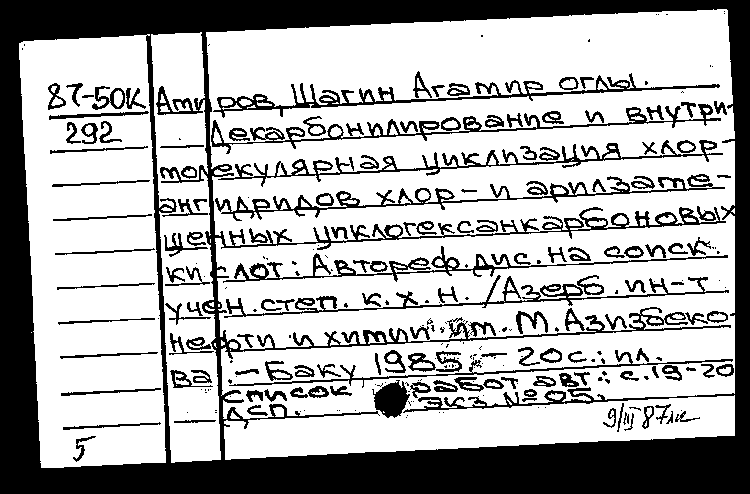 87-50К Амиров, Шагин Агамир оглы.
292 Декарбонилирование и внутри-
молекулярная циклизация хлор-
ангидридов хлор- и арилзаме-
щенных циклогексанкарбоновых
кислот: Автореф. дис. на соиск.
учен. степ. к. х. н. /Азерб. ин-т
нефти и химии им. М. Азизбеко-
ва. - Баку, 1985. - 20 с.: ил.
список работ авт.: с. 19-20
ДСП. экз. № 05.
5 9/III 87